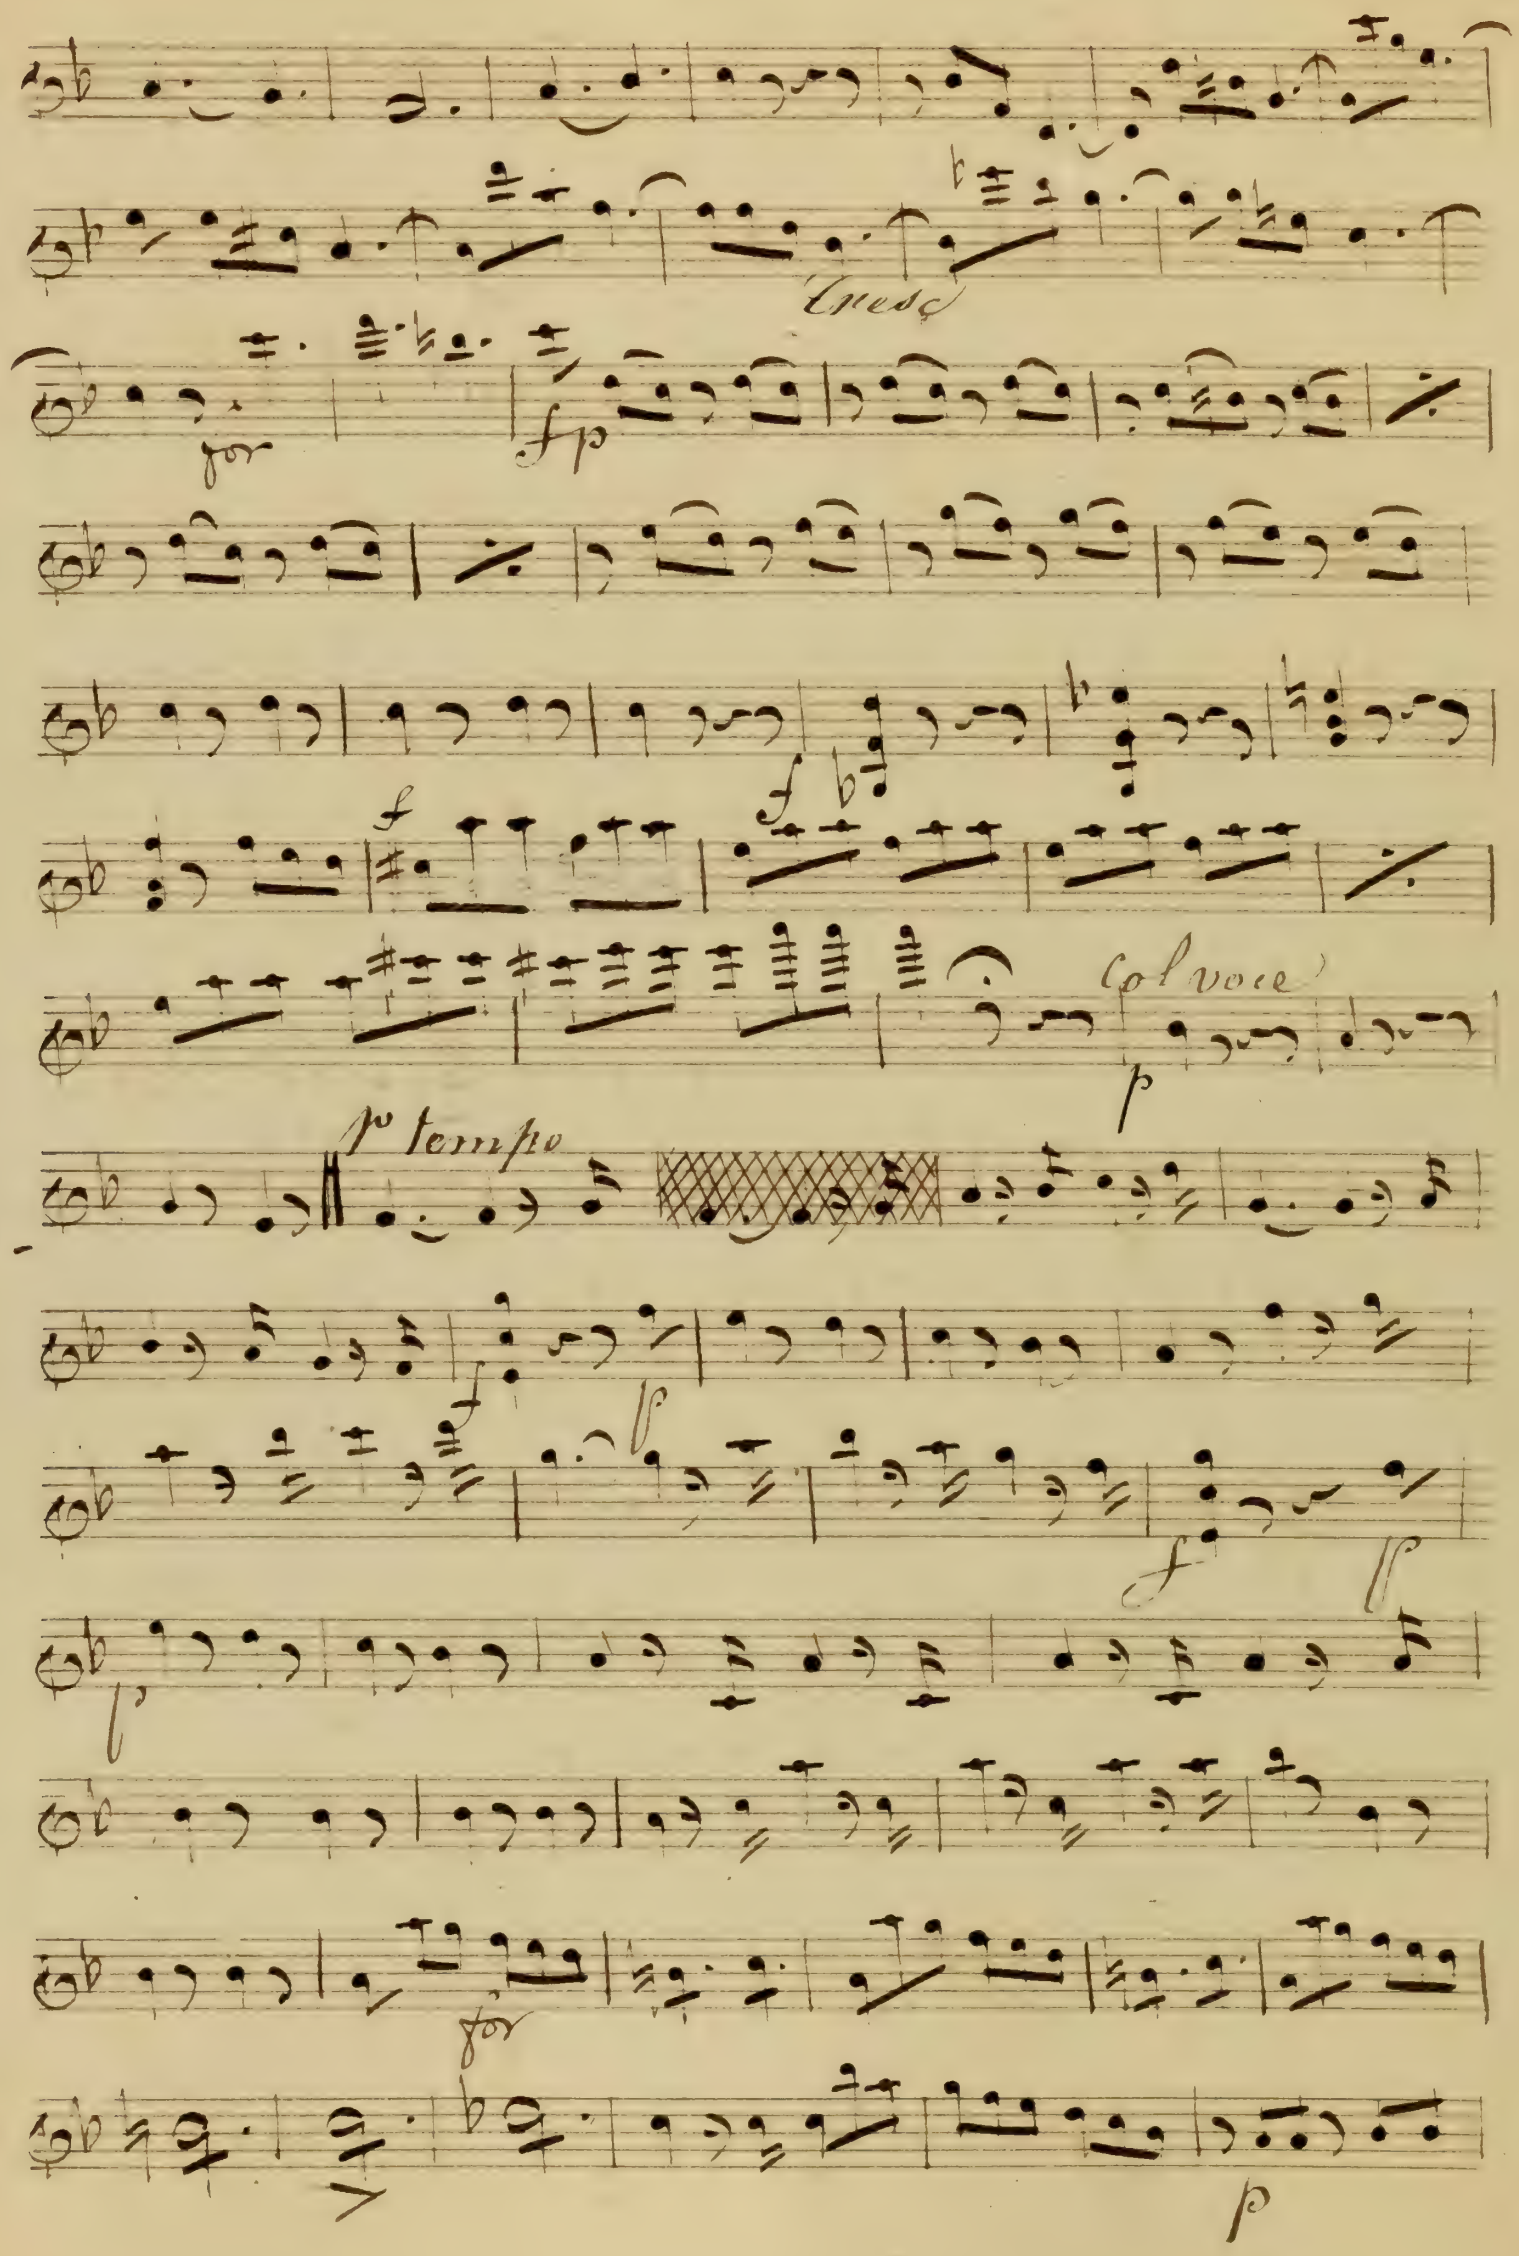 Cresc
for
fp
f
f
col voce
p
p tempo
f p
f p
p
for
p